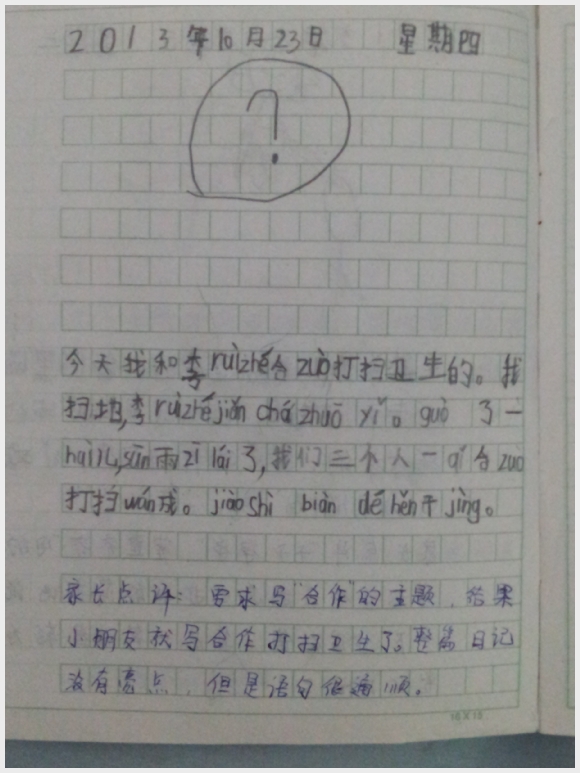 2013年10月23日 星期四
?
今天我和李ruìzhé合zuò打扫卫生的。我
扫地,李ruìzhéjiǎn chá zhuō yǐ。guò 了一
hàir儿,sūn雨zǐ lái了,我们三个人一qǐ合zuò
打扫wán成。jiào shì biàn dé hěn干jìng。
家长点评:要求写"合作"的主题,结果
小朋友就写合作打扫卫生了。整篇日记
没有亮点,但是语句很通顺。
16×18